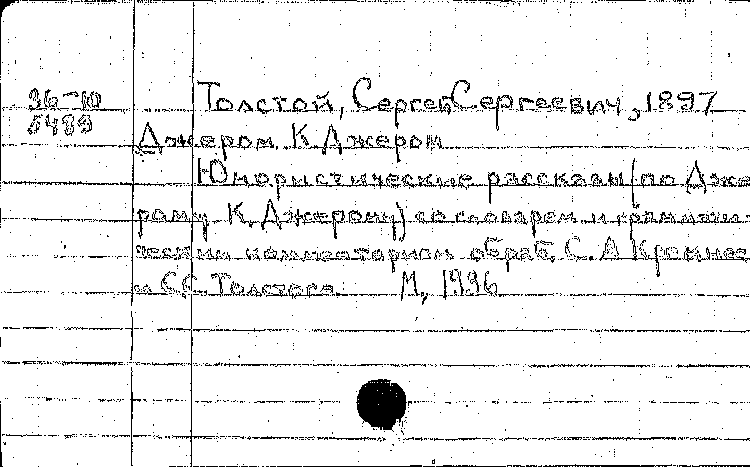 36-10
5489
Толстой, Сергей Сергеевич, 1897
Джером К. Джером
Юмористические рассказы (по Дже
рому К. Джерому) со словарем и граммати-
ческим комментарием обраб. С. А Кромнес
и С.С. Толстого М, 1936